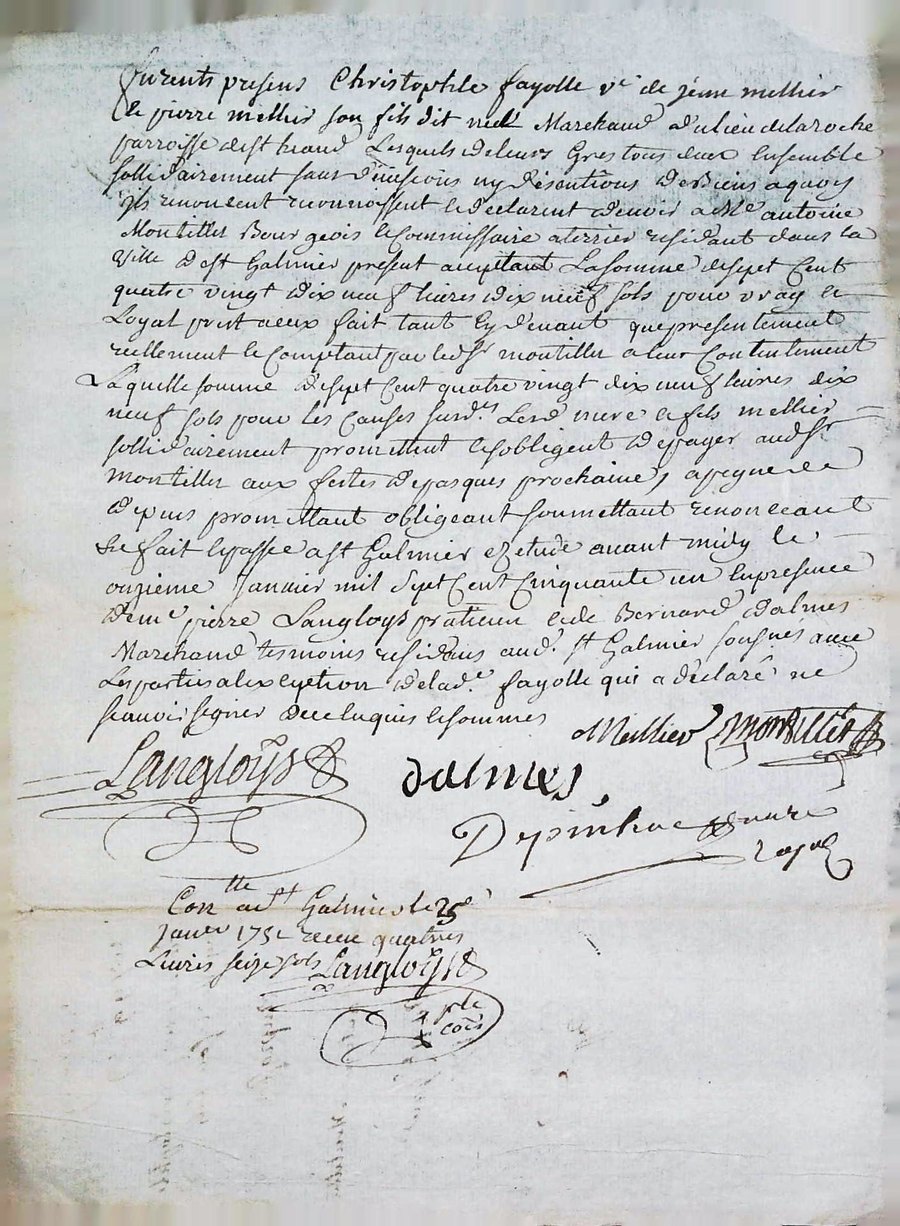 furents presens Christophle fayolle ve de jême mellier
& pierre mellier son fils dit Marchand du lieu de la roche
parroisse de st heand Lesquels de leurs Gres tous deux Ensemble
sollidairement sans division ny discutions de Biens a quoy
ils renoncent reconnoissent & declarent devoir a Me antoine
Montillier Bourgeois & Commissaire a terrier residant dans la
Ville de st Galmier present acceptant La somme de sept Cent
quatre vingt dix neuf livres dix neuf sols pour vray &
Loyal pret a eux fait tant Cy devant que presentement
reellement & Comptant par led Sr montillier a leur Contentement
Laquelle somme de sept Cent quatre vingt dix neuf livres dix
neuf sols pour les Causes surd.es Lesd. mere & fils mellier
sollidairement promettent & sobligent de payer aud Sr
montillier aux festes de pasques prochaines a peyne de
depens promettant obligeant soumettant renonceant
& fait & passé a st Galmier ez etude avant midy le
onzieme Janvier mil sept Cent Cinquante un En presence
de me pierre Langloys praticien & de Bernard dalmes
Marchand tesmoins residans aud. st Galmier sousignés avec
Les parties a lexception de lad.e fayolle qui a déclaré ne
scavoir signer de ce enquis & sommés
Mellier Montillier
Langloys
dalmes
Depinhac nore
royal
Con.lle a st Galmier le 25e
Janver 1751 receu quatres
Livres seize sols Langloys